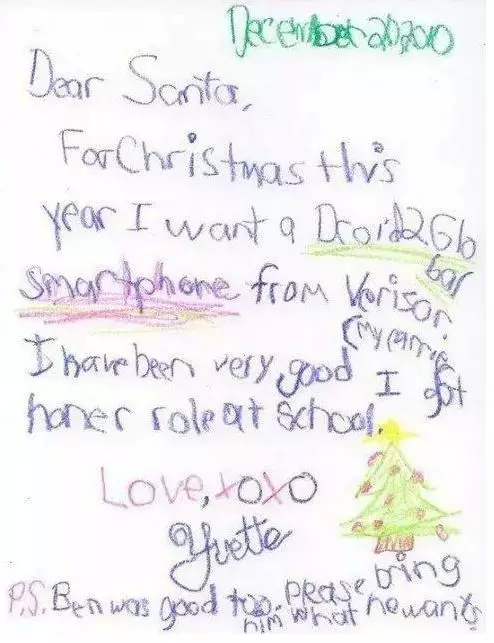 December 20 2010
Dear Santa,
For Christmas this
year I want a Droid 2 Glo
bar
smartphone from Verison
(my carrie
I have been very good I got
honer role at school.
Love, xoxo
Yvette
P.S. Ben was good too. please bring
him what he wants